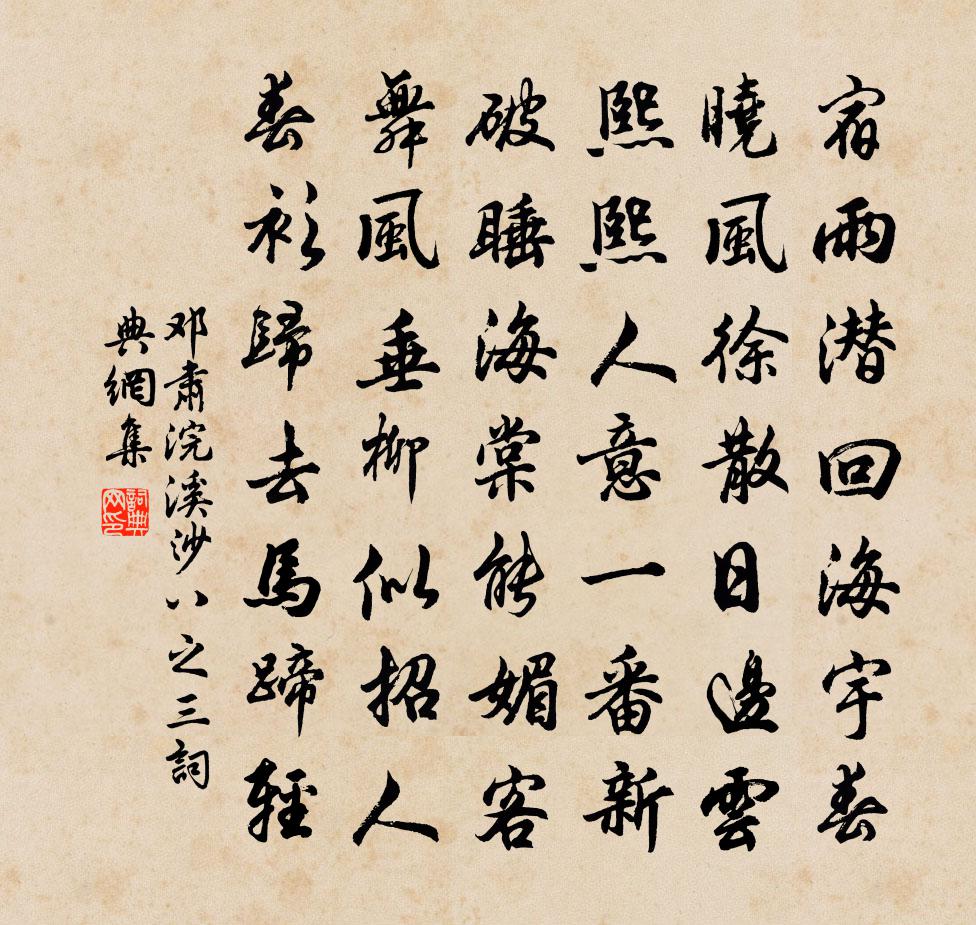 宿雨潜回海宇春
曉風徐散日邊雲
熙熙人意一番新
破睡海棠能媚客
舞風垂柳似招人
春衫歸去馬蹄輕
邓肅浣溪沙八之三詞
典網集
詞典网印